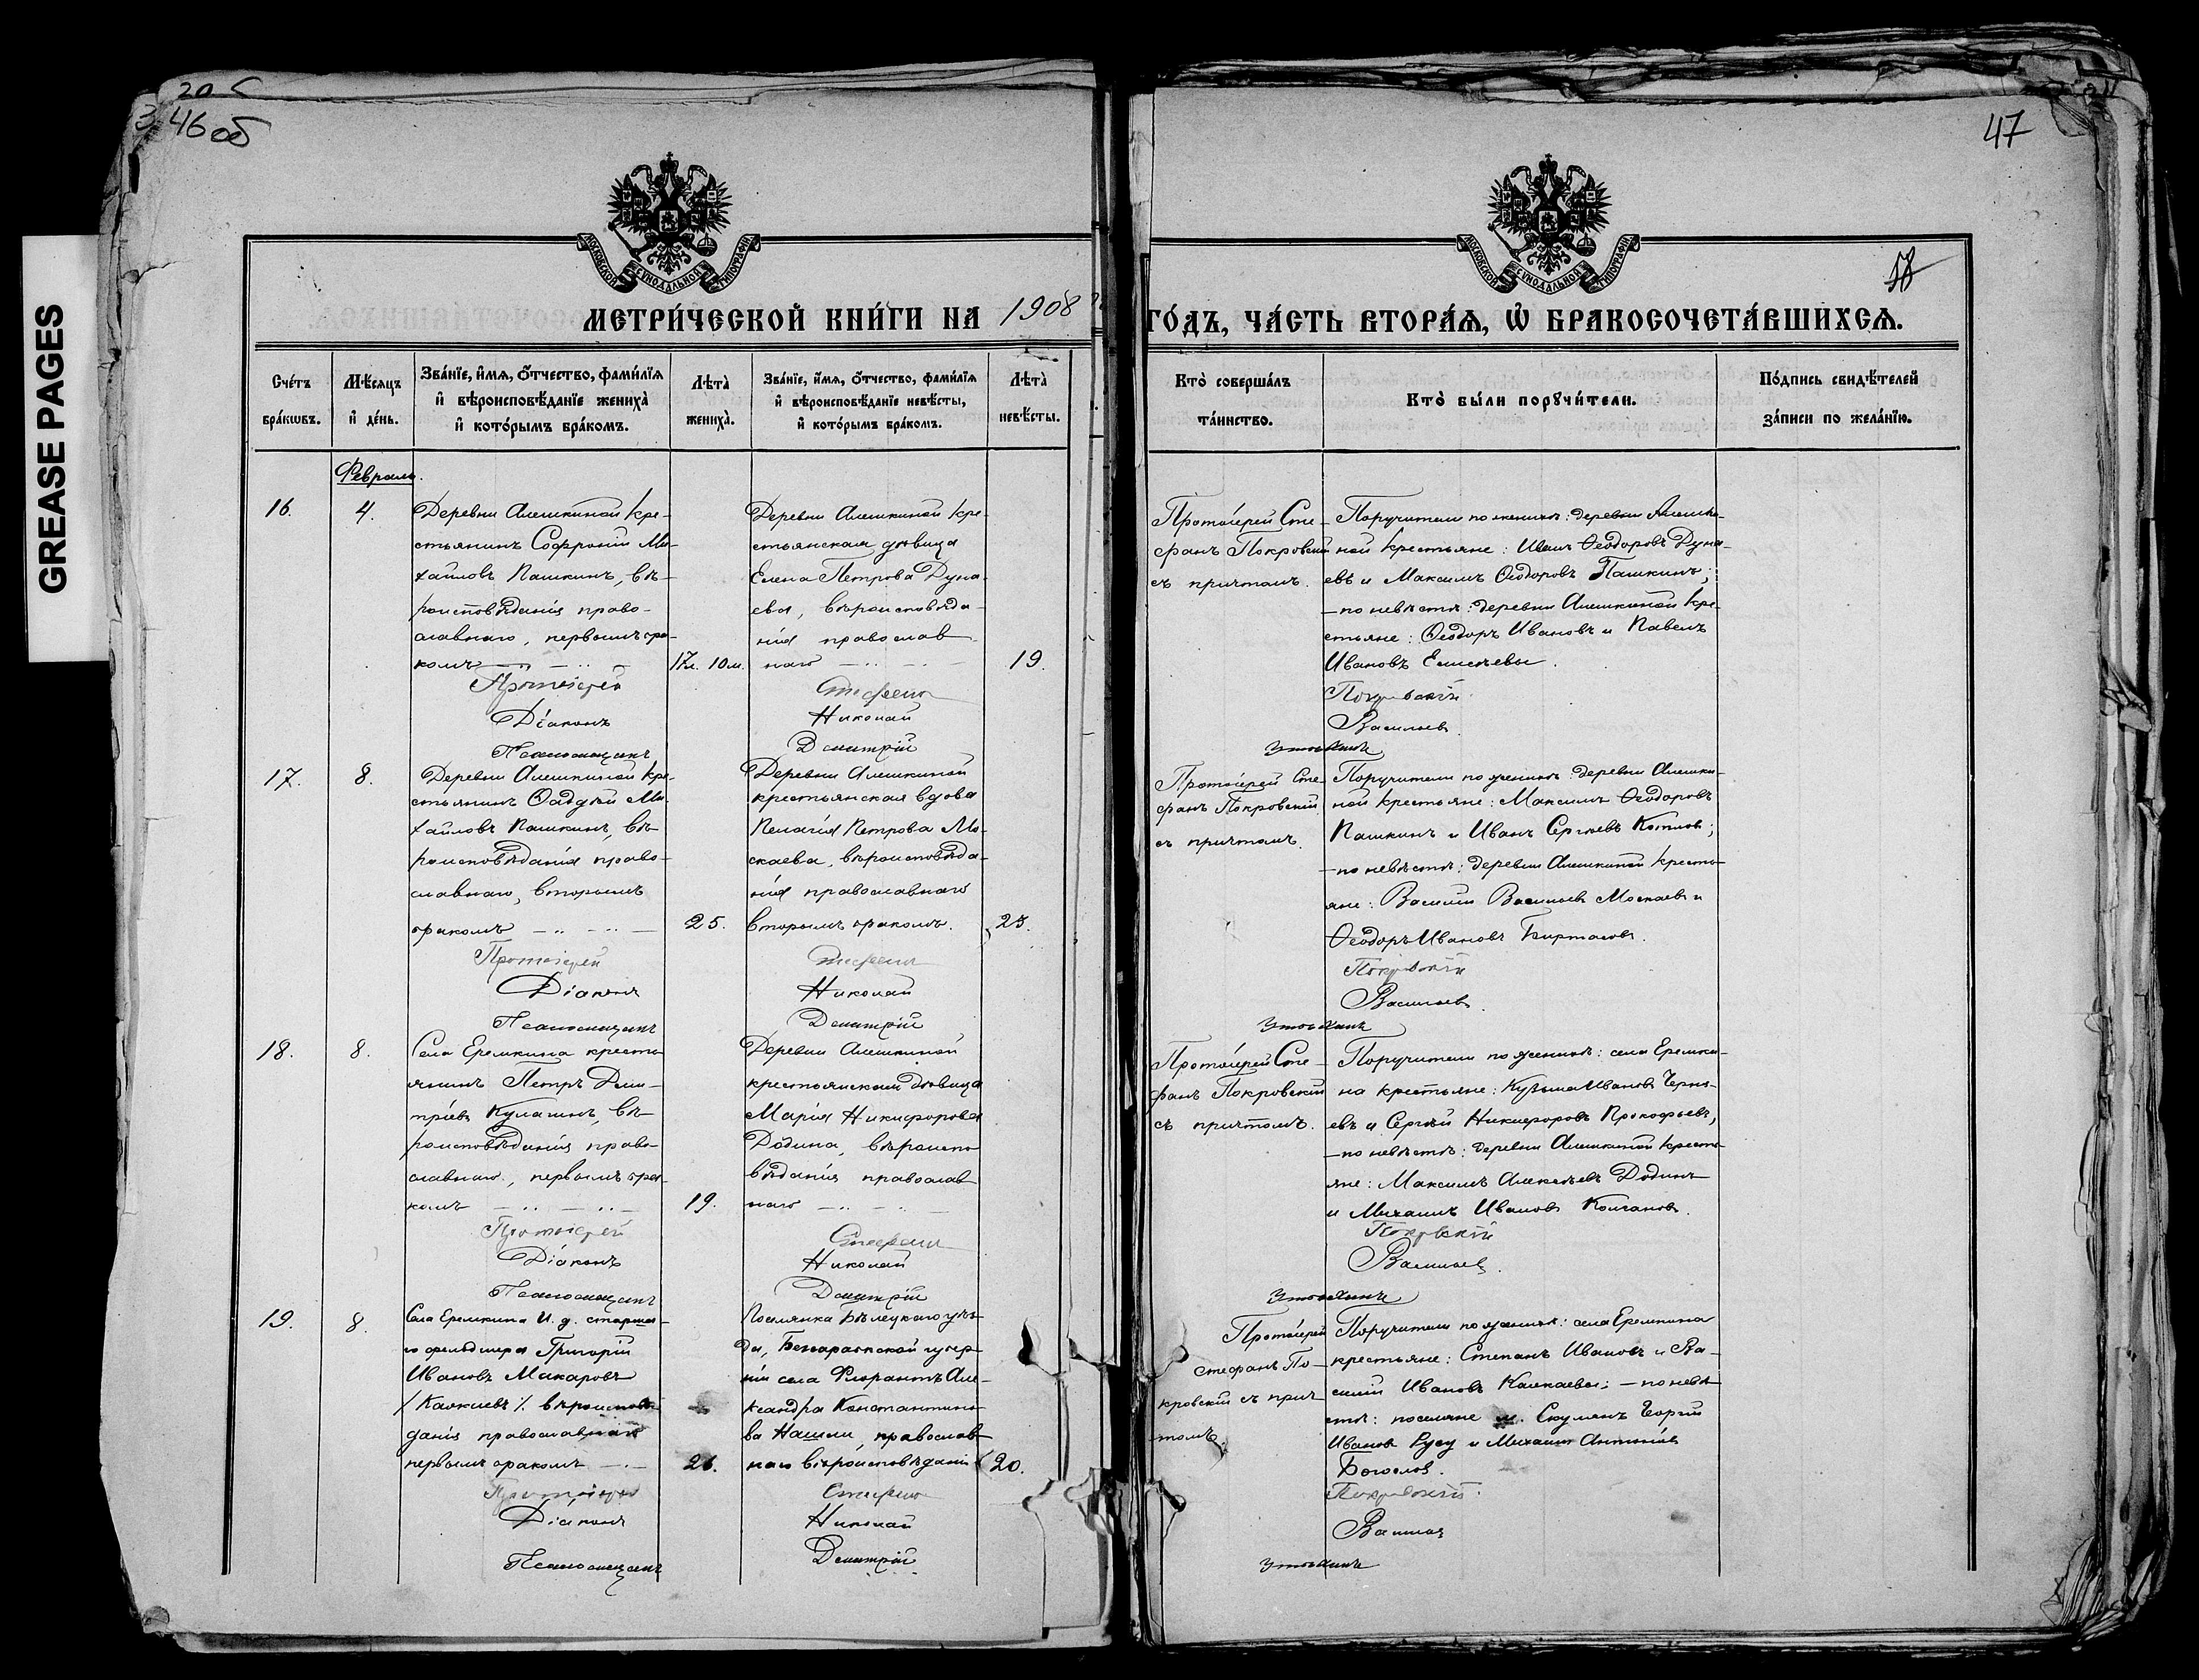 GREASE PAGES
46 об
47
МОСКОВСКОЙ СѴНОДАЛЬНОЙ ТИПОГРАФІИ
МОСКОВСКОЙ СѴНОДАЛЬНОЙ ТИПОГРАФІИ
МЕТРИ́ЧЕСКОЙ КНИ́ГИ НА 1908 ГО́ДЪ, ЧА́СТЬ ВТОРА́Ѧ, Ѽ БРАКОСОЧЕТА́ВШИХСѦ.
Сче́тъ
бра́кωвъ.
Мѣ́сяцъ
и҆ де́нь.
Зва́нїе, и҆́мя, о҆́тчество, фами́лїя
и҆ вѣроисповѣ́данїе жениха̀
и҆ кото́рымъ бра́комъ.
Лѣта̀
жениха̀.
Зва́нїе, и҆́мя, о҆́тчество, фами́лїя
и҆ вѣроисповѣ́данїе невѣ́сты,
и҆ кото́рымъ бра́комъ.
Лѣта̀
невѣ́сты.
Кто̀ соверша́лъ
та́инство.
Кто̀ бы́ли порꙋчи́тели.
По́дпись свидѣ́телей
за́писи по жела́нїю.
Февраль.
16.
4.
Деревни Алешкиной кре-
стьянинъ Софроній Ми-
хайловъ Пашкинъ, вѣ-
роисповѣданія право-
славнаго, первымъ бра-
комъ
17л. 10м.
Деревни Алешкиной кре-
стьянская дѣвица
Елена Петрова Дуна-
ева, вѣроисповѣда-
нія православ-
наго
19.
Протоіерей Сте-
фанъ Покровскій
съ причтомъ.
Поручители по женихѣ: деревни Алешки-
ной крестьяне: Иванъ Ѳеодоровъ Дуна-
евъ и Максимъ Ѳеодоровъ Пашкинъ;
— по невѣстѣ: деревни Алешкиной кре-
стьяне: Ѳеодоръ Ивановъ и Павелъ
Ивановъ Елисѣевы.
Протоіерей Стефанъ Покровскій
Діаконъ Николай Васильевъ
Псаломщикъ Димитрій
17.
8.
Деревни Алешкиной кре-
стьянинъ Ѳаддѣй Ми-
хайловъ Пашкинъ, вѣ-
роисповѣданія право-
славнаго, вторымъ
бракомъ
25.
Деревни Алешкиной
крестьянская вдова
Пелагія Петрова Мо-
скаева, вѣроисповѣда-
нія православнаго
вторымъ бракомъ.
25.
Протоіерей Сте-
фанъ Покровскій
съ причтомъ.
Поручители по женихѣ: деревни Алешки-
ной крестьяне: Максимъ Ѳеодоровъ
Пашкинъ и Иванъ Сергѣевъ
— по невѣстѣ: деревни Алешкиной кресть-
яне: Василій Васильевъ Москаевъ и
Ѳеодоръ Ивановъ
Протоіерей Стефанъ Покровскій
Діаконъ Николай Васильевъ
Псаломщикъ Димитрій
18.
8.
Села Еремкина кресть-
янинъ Петръ Дми-
тріевъ Кулагинъ, вѣ-
роисповѣданія право-
славнаго, первымъ бра-
комъ
19.
Деревни Алешкиной
крестьянская дѣвица
Марія Никифорова
Додина, вѣроиспо-
вѣданія православ-
наго
Протоіерей Сте-
фанъ Покровскій
съ причтомъ.
Поручители по женихѣ: села Еремки-
на крестьяне: Кузьма Ивановъ Черно-
евъ и Сергѣй Никифоровъ Прокофьевъ;
— по невѣстѣ: деревни Алешкиной кресть-
яне: Максимъ Алексѣевъ Додинъ
и Михаилъ Ивановъ Колгановъ.
Протоіерей Стефанъ Покровскій
Діаконъ Николай Васильевъ
Псаломщикъ Димитрій
19.
8.
Села Еремкина И. д. старша-
го фельдшера Григорій
Ивановъ Макаровъ
вѣроисповѣ-
данія православнаго
первымъ бракомъ
26.
Поселянка Бѣлецкаго уѣз-
да, Бессарабской губер-
ніи села Але-
ксандра Константино-
ва православ-
наго вѣроисповѣданія
20.
Протоіерей
Стефанъ По-
кровскій съ прич-
томъ.
Поручители по женихѣ: села Еремкина
крестьяне: Степанъ Ивановъ и Ва-
силій Ивановъ Калкаевы; — по невѣ-
стѣ: поселяне м. Скулянъ Георгій
Ивановъ Русу и Михаилъ Антоніевъ
Богословъ.
Протоіерей Стефанъ Покровскій
Діаконъ Николай Васильевъ
Псаломщикъ Димитрій